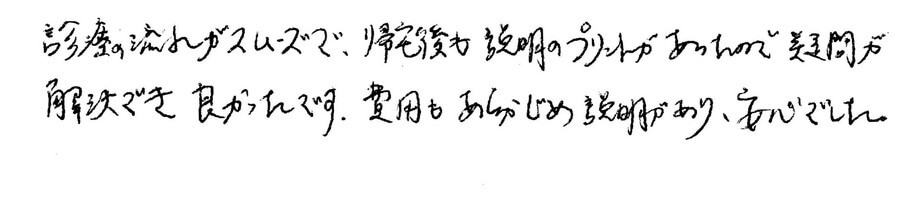 診療の流れがスムーズで、帰宅後も説明のプリントがあったので疑問が
解決でき良かったです。費用もあらかじめ説明があり、安心でした。